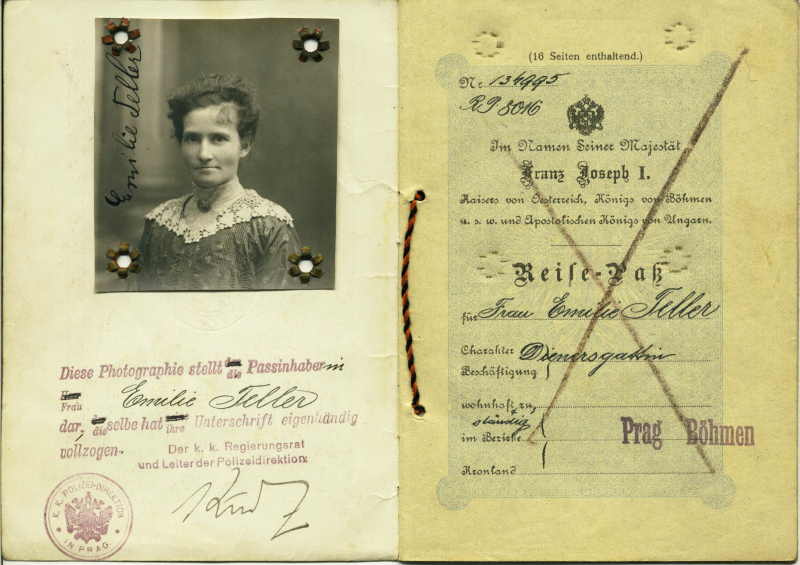 Emilie Teller
Diese Photographie stellt die Passinhaberin
Frau Emilie Teller
dar, dieselbe hat ihre Unterschrift eigenhändig
vollzogen.
Der k. k. Regierungsrat
und Leiter der Polizeidirektion:
K. K. POLIZEI-DIREKTION
IN PRAG
(16 Seiten enthaltend.)
Nr. 134995
RP 8016
Im Namen Seiner Majestät
Franz Joseph I.
Kaisers von Oesterreich, Königs von Böhmen
u. s. w. und Apostolischen Königs von Ungarn.
Reise-Paß
für Frau Emilie Teller
Charakter Dienersgattin
Beschäftigung
wohnhaft zu
ständig
im Bezirke Prag Böhmen
Kronland